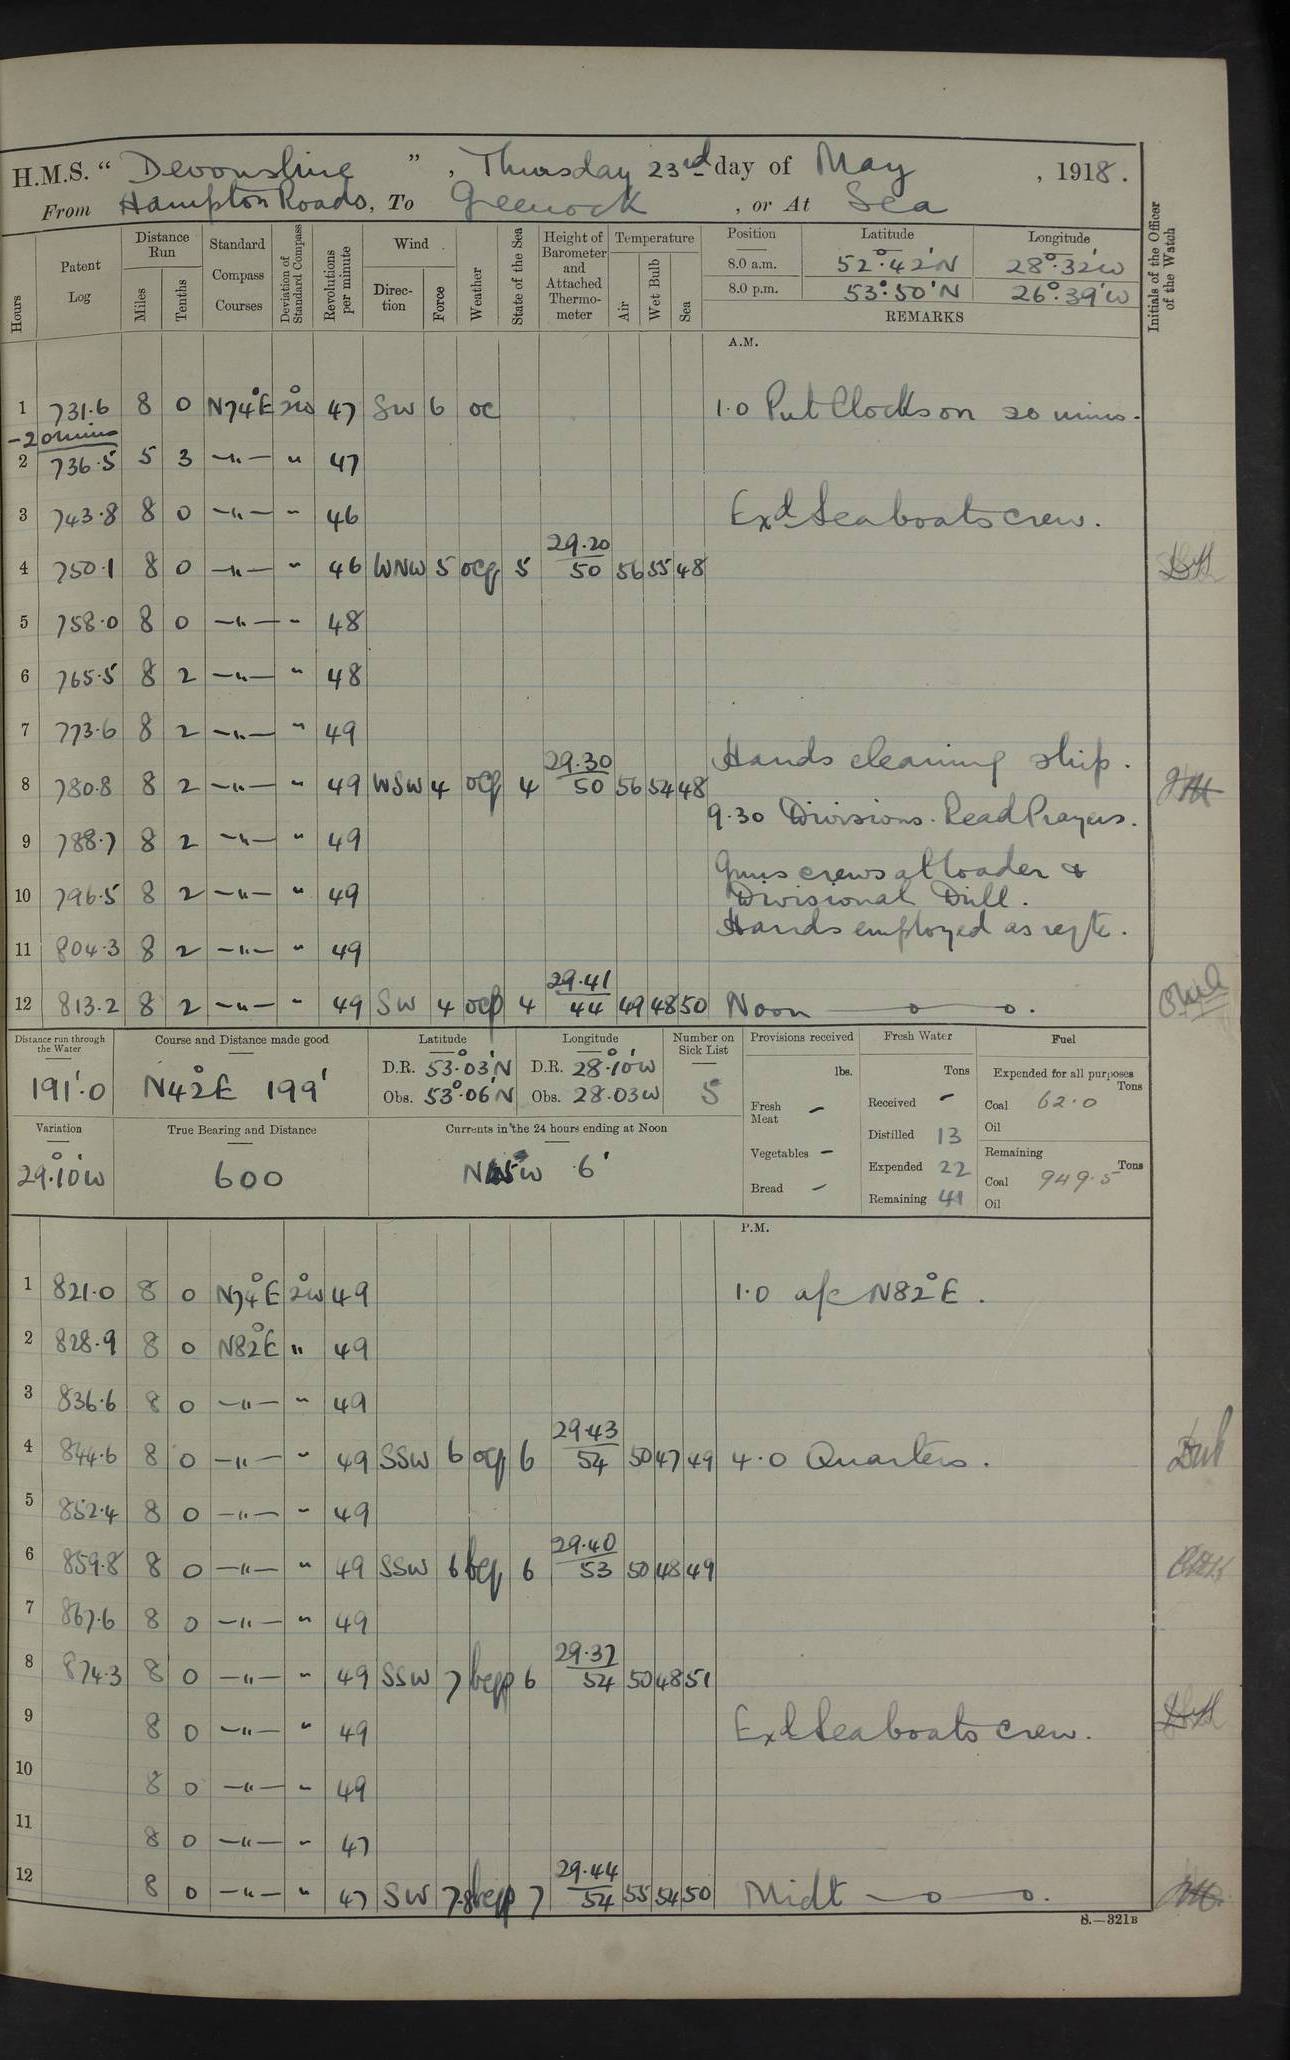 H.M.S. “ Devonshire ”, Thursday 23rd day of May, 1918.
From Hampton Roads, To Greenock, or At Sea
Hours
Patent Log
Distance Run
Miles
Tenths
Standard Compass Courses
Deviation of Standard Compass
Revolutions per minute
Wind
Direction
Force
Weather
State of the Sea
Height of Barometer and Attached Thermometer
Temperature
Air
Wet Bulb
Sea
Position
Latitude
Longitude
8.0 a.m. 52°.42'N 28°.32'W
8.0 p.m. 53°.50'N 26°.39'W
REMARKS
Initials of the Officer of the Watch
A.M.
1 731.6 8 0 N74°E 2°W 47 SW 6 oc 1.0 Put Clocks on 20 mins.
-20 mins
2 736.5 5 3 —"— " 47
3 743.8 8 0 —"— " 46 Exd Seaboats crew.
4 750.1 8 0 —"— " 46 WNW 5 ocq 5 29.20 50 56 55 48
5 758.0 8 0 —"— " 48
6 765.5 8 2 —"— " 48
7 773.6 8 2 —"— " 49
Hands cleaning ship.
8 780.8 8 2 —"— " 49 WSW 4 ocq 4 29.30 50 56 54 48
9.30 Divisions. Read Prayers.
9 788.7 8 2 —"— " 49
Guns crews at loader &
10 796.5 8 2 —"— " 49 Divisional Drill.
Hands employed as reqte.
11 804.3 8 2 —"— " 49
12 813.2 8 2 —"— " 49 SW 4 ocp 4 29.41 44 49 48 50 Noon
Distance run through the Water
191'.0
Course and Distance made good
N42°E 199'
Latitude
D.R. 53°.03'N
Obs. 53°.06'N
Longitude
D.R. 28°.10'W
Obs. 28.03W
Number on Sick List
5
Provisions received
lbs.
Fresh Meat –
Vegetables –
Bread –
Fresh Water
Tons
Received –
Distilled 13
Expended 22
Remaining 41
Fuel
Expended for all purposes
Tons
Coal 62.0
Oil
Remaining
Tons
Coal 949.5
Oil
Variation
29°.10'W
True Bearing and Distance
600
Currents in the 24 hours ending at Noon
6'
P.M.
1 821.0 8 0 N74°E 2°W 49 1.0 a/c N82°E.
2 828.9 8 0 N82°E " 49
3 836.6 8 0 —"— " 49
4 844.6 8 0 —"— " 49 SSW 6 ocq 6 29.43 54 50 47 49 4.0 Quarters.
5 852.4 8 0 —"— " 49
6 859.8 8 0 —"— " 49 SSW 6 bcq 6 29.40 53 50 48 49
7 867.6 8 0 —"— " 49
8 874.3 8 0 —"— " 49 SSW 7 bcqp 6 29.37 54 50 48 51
9 8 0 —"— " 49 Exd Seaboats crew.
10 8 0 —"— " 49
11 8 0 —"— " 47
12 8 0 —"— " 47 SW 7.8 bcqp 7 29.44 54 55 54 50 Midt
S.—321B